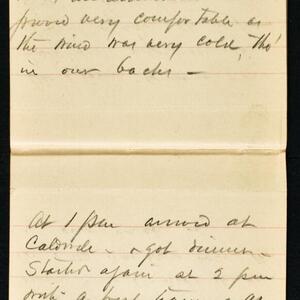 proved very comfortable as
the wind was very cold, tho'
in our backs —
At 1 pm arrived at
Caldwell - & got dinner -
Started again at 2 pm
with a fresh team - as